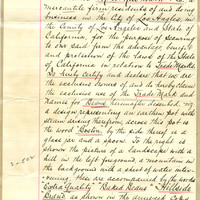 mercantile firm residents of and doing
business in the City of Los Angeles, in
the County of Los Angeles and State of
California, for the purpose of securing
to our said firm the advantage, benefit
and protection of the laws of the State
of California in relation to Trade Marks
Do hereby certify and declare that we are
the exclusive owners of, and do hereby claim
the exclusive use of the Trade Mark and
Names for Beans hereinafter described, viz
a design representing an earthen pot with
steam arising therefrom, across the pot is the
word "Boston" by the side thereof is a
glass jar and a spoon. To the right is
shown the picture of a landscape with a
hill in the left foreground, a mountain in
the background with a sheet of water inter-
vening. These are accompanied by the words
"Extra Quality" "Baked Beans" "Hillside
Brand" as shown on the annexed Copy